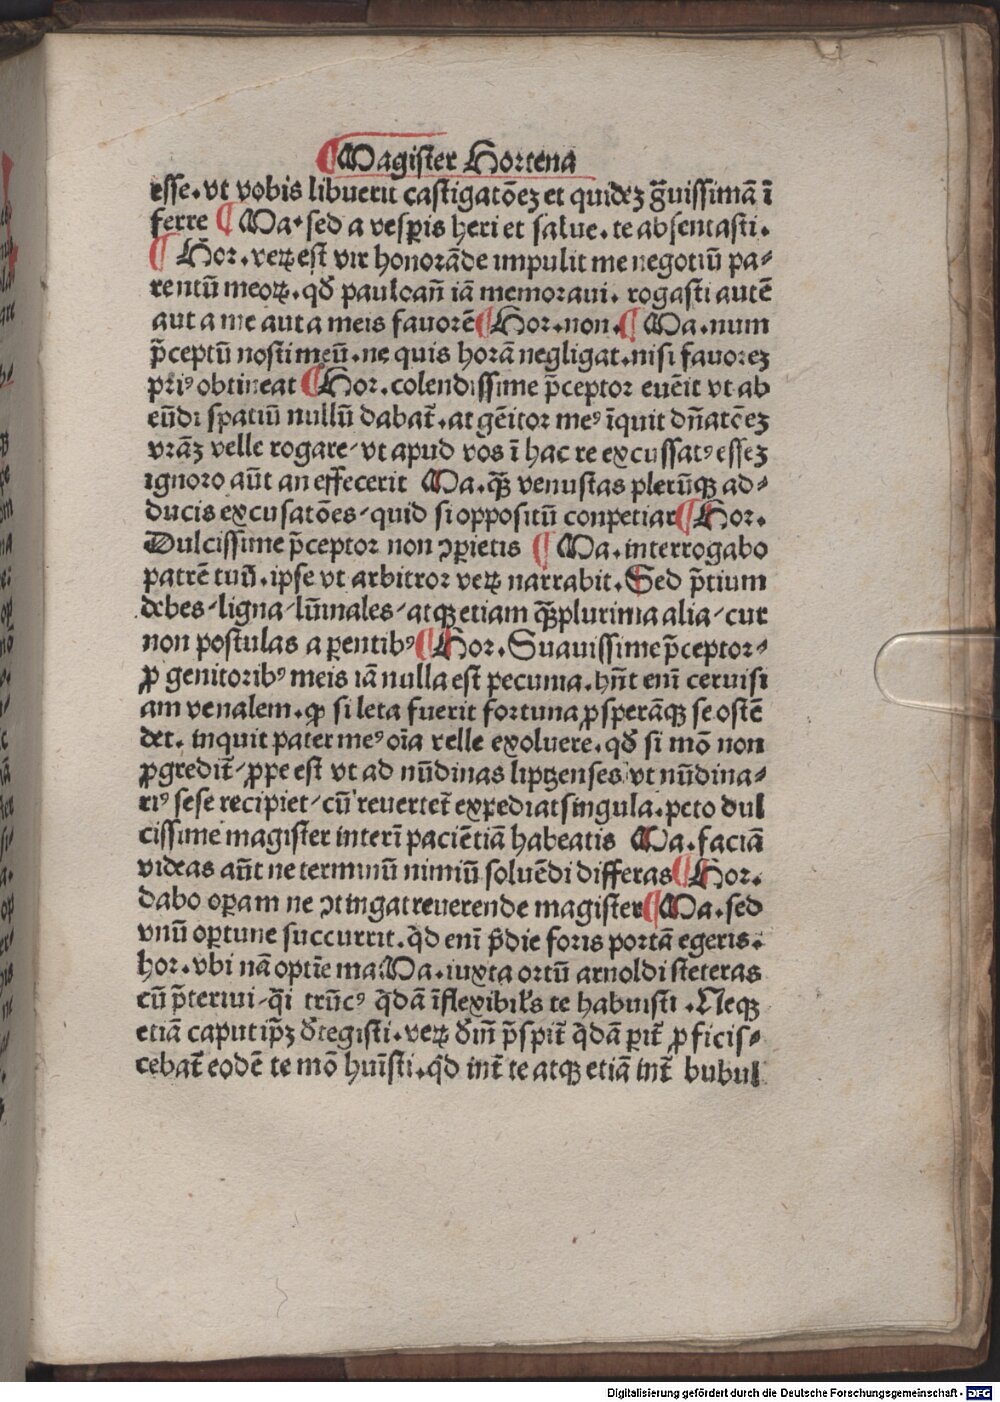 ¶Magister Hortena
esse. vt vobis libuerit castigatōeꝫ et quideꝫ g̃uissimā ī
ferre ¶ Ma. sed a vesꝑis heri et salue. te absentasti.
¶ Hor. veꝝ est vir honorāde impulit me negotiū pa⸗
rentū meoꝝ. qđ pauloan̄ iā memoraui. rogasti autē
aut a me aut a meis fauorē ¶Hor. non. ¶ Ma. num
p̄ceptū nosti meū. ne quis horā negligat. nisi fauoreꝫ
priꝰ obtineat ¶Hor. colendissime p̄ceptor euēit vt ab
eūdi spatiū nullū dabat̄. at gēitor meꝰ īquit dn̄atōeꝫ
vr̄aꝫ velle rogare/ vt apud vos ī hac re excussatꝰ esseꝫ
ignoro aūt an effecerit Ma. qꝫ̄ venustas plerūqꝫ ad⸗
ducis excusatōes/ quid si oppositū conpetiar ¶Hor.
Dulcissime p̄ceptor non ↄꝑietis ¶ Ma. interrogabo
patrē tuū. ipse vt arbitror veꝝ narrabit. Sed p̄tium
debes/ ligna/ lūīnales/ atqꝫ etiam qꝫ̄plurima alia/ cur
non postulas a ꝑentibꝰ ¶Hor. Suauissime p̄ceptor⸗
ꝓ genitoribꝰ meis iā nulla est pecunia. hn̄t enī ceruisi
am venalem. ꝙ si leta fuerit fortuna ꝓsperāqꝫ se ostē
det. inquit pater meꝰ oīa velle exoluere. qđ si mō non
ꝓgredit̄/ ꝓpe est vt ad nūdinas liptzenses vt nūdina⸗
riꝰ sese recipiet/ cū reuertet̄ exꝑediat singula. peto dul
cissime magister interī paciētiā habeatis Ma. faciā
videas aūt ne terminū nimiū soluēdi differas ¶Hor.
dabo oꝑam ne ↄtingat reuerende magister ¶Ma. sed
vnū oꝑtune succurrit. q̄d enī p̄die foris portā egeris.
hor. vbi nā optīe ma. Ma. iuxta ortū arnoldi steteras
cū p̄teriui/ q̄i trūcꝰ q̄dā īflexibilꝭ te habuisti. Neqꝫ
etiā caput ip̄ꝫ đtegisti. veꝝ đin̄ p̄spit̄ q̄dā ꝑit̄ ꝓficis⸗
cebat̄ eodē te mō huīsti. q̄d int̄ te atqꝫ etiā int̄ bubul
Digitalisierung gefördert durch die Deutsche Forschungsgemeinschaft - DFG